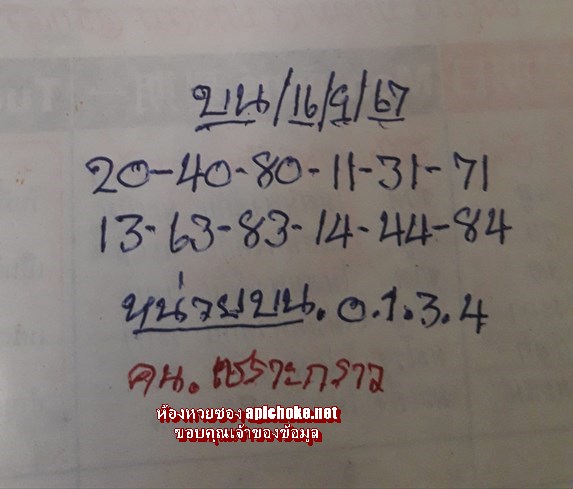 บน/16/9/67
20-40-80-11-31-71
13-63-83-14-44-84
หน่วยบน.0.1.3.4
คน.เซราะกราว
ห้องหวยซอง apichoke.net
ขอบคุณเจ้าของข้อมุล